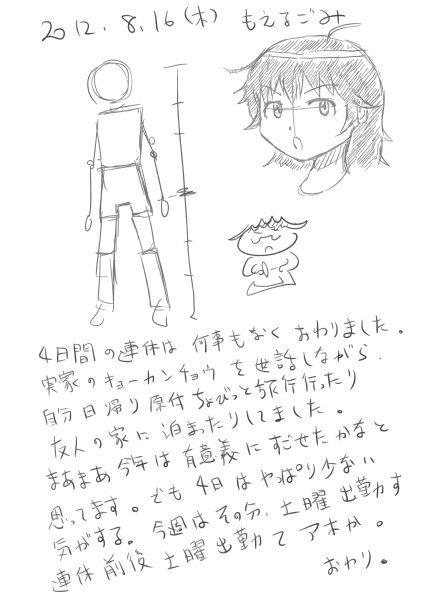 2012.8.16(木) もえるごみ
4日間の連休は 何事もなく おわりました。
実家のキョーカンチョウ を世話しながら、
自分日帰り原付ちょびっと旅行行ったり
友人の家に泊まったりしてました。
まあまあ今年は有意義にすごせたかなと
思ってます。でも4日はやっぱり少ない
気がする。今週はその分、土曜出勤す
連休前後土曜出勤てアホか。
おわり。